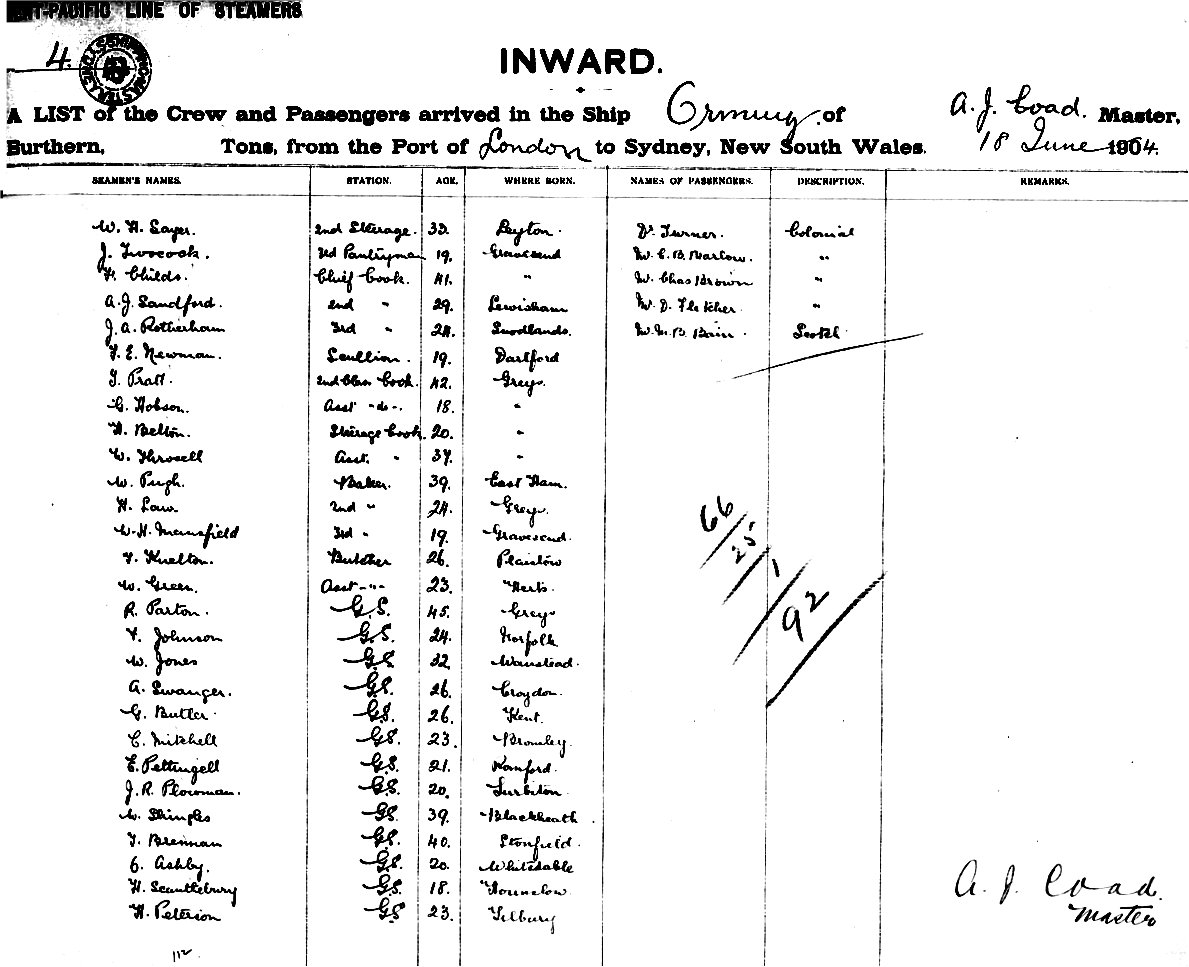 -PACIFIC LINE OF STEAMERS
4.
INWARD.
A LIST of the Crew and Passengers arrived in the Ship Ormuz of A. J. Coad. Master,
Burthern, Tons, from the Port of London to Sydney, New South Wales. 18 June 1904.
SEAMEN'S NAMES. STATION. AGE. WHERE BORN. NAMES OF PASSENGERS. DESCRIPTION. REMARKS.
W. H. Sayer. 2nd Steerage. 33. Peyton. Dr. Turner. Colonial
J. Twocock. 3rd Pantryman 19. Gravesend M. C. B. Marlow. "
H. Childs. Chief Cook. 41. " M. Chas Brown "
A. J. Sandford. 2nd " 29. Lewisham M. D. Fletcher. "
J. A. Rotherham 3rd " 24. Snodlands. Bain. Scotch
F. E. Newman. Scullion. 19. Dartford
T. Pratt. 2nd Class Cook. 42. Greys.
G. Hobson. Asst -do-. 18. "
H. Belton. Steerage Cook. 20. "
W. Throsell Asst. " 37. "
W. Pugh. Baker. 39. East Ham.
H. Law. 2nd " 24. Greys.
W. H. Mansfield 3rd " 19. Gravesend.
F. Knelton. Butcher 26. Plaistow
W. Green. Asst -"- 23. Herts.
R. Parton. G.S. 45. Greys
F. Johnson G.S. 24. Norfolk
W. Jones G.S. 32. Wanstead.
A. Swanger. G.S. 26. Croydon.
G. Butler. G.S. 26. Kent.
C. Mitchell G.S. 23. Bromley.
E. Pettingell G.S. 21. Romford.
J. R. Plowman. G.S. 20. Surbiton.
W. Shingles G.S. 39. Blackheath.
T. Brennan G.S. 40. Stonfield.
E. Ashby. G.S. 20. Whitstable
H. Scantlebury G.S. 18. Hounslow
H. Peterson G.S. 23. Tilbury
66
25
1
92
A. J. Coad.
Master
112